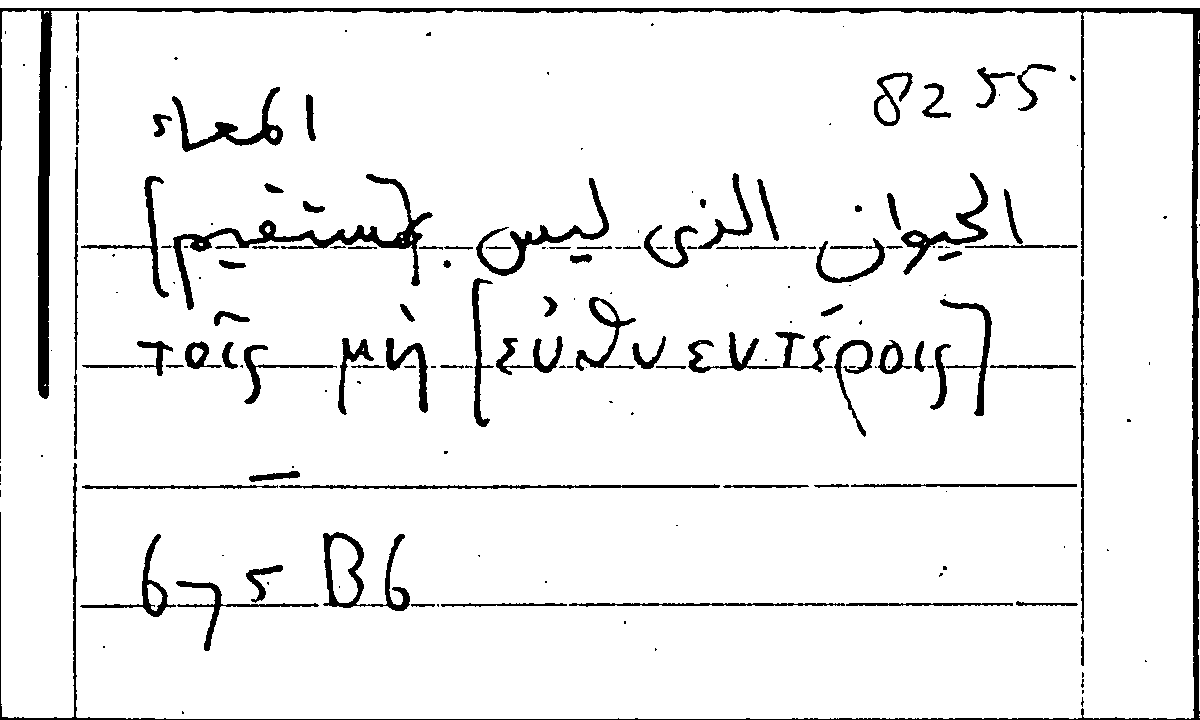 8255
المعاء
الحيوان الذى ليس [بمستقيم]
τοῖς μὴ [εὐθυεντέροις]
—
675 B6